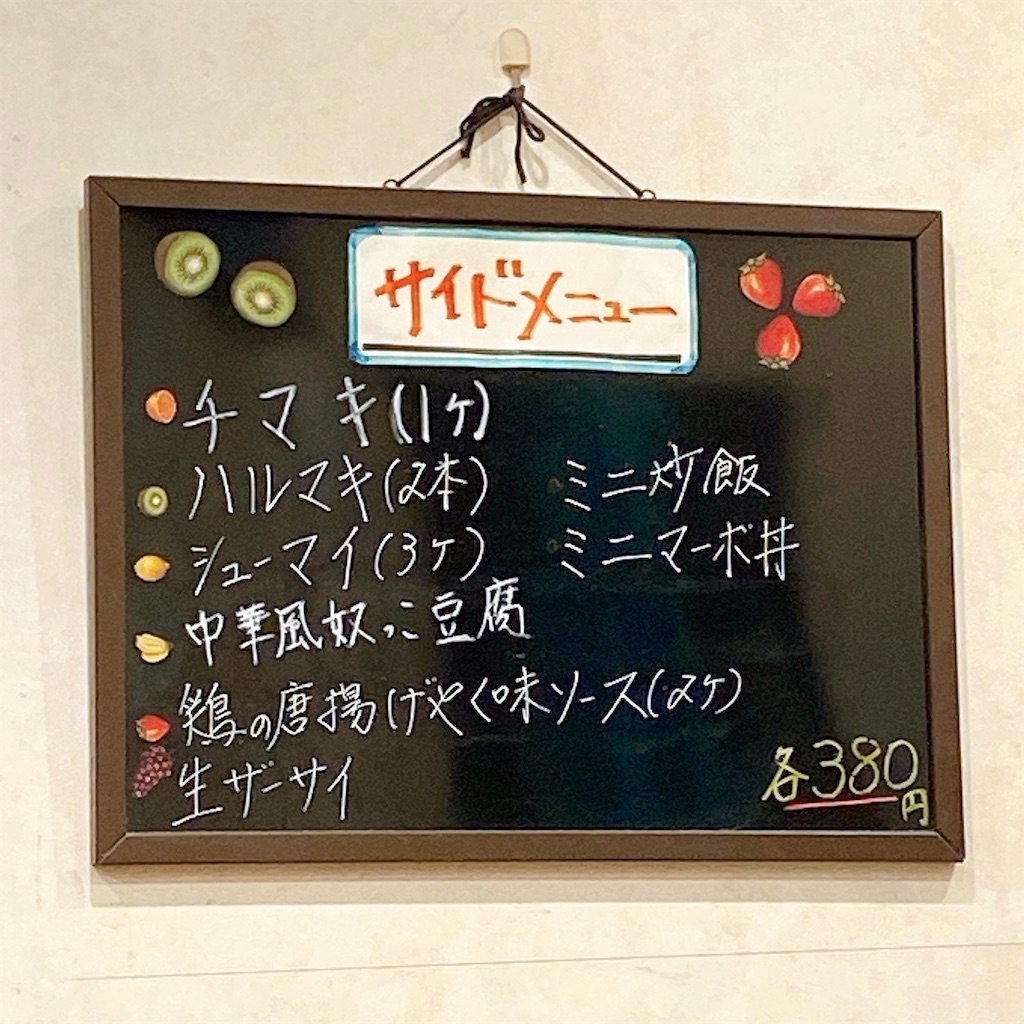 サイドメニュー
チマキ(1ケ)
ハルマキ(2本)
シューマイ(3ケ)
中華風奴っこ豆腐
鶏の唐揚げやく味ソース(2ケ)
生ザーサイ
ミニ炒飯
ミニマーボ丼
各380円